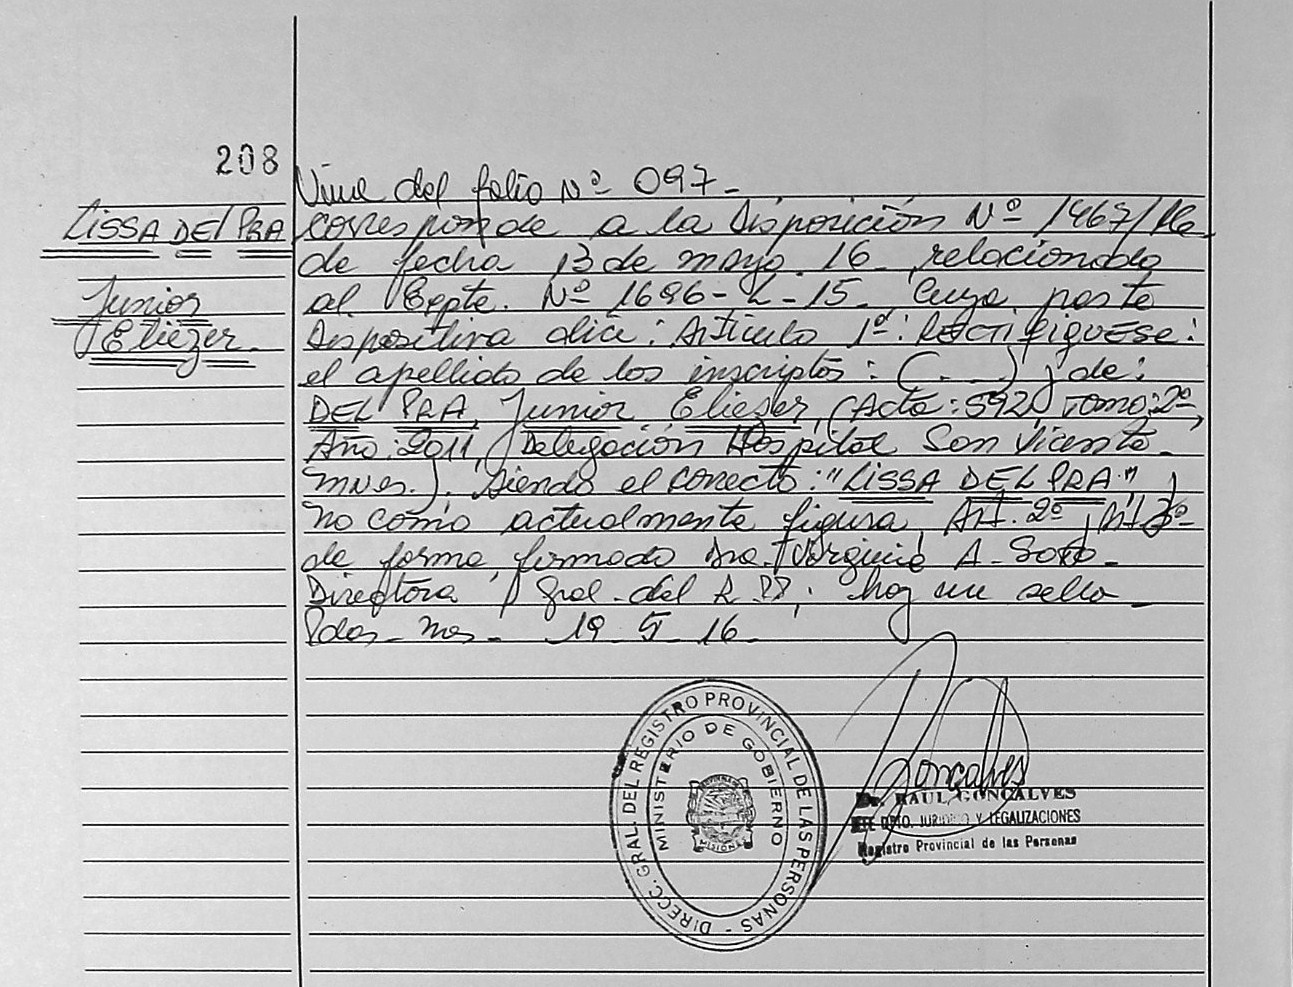 208
Viene del folio Nº 097-
LISSA DEL PRA
Junior
Eliezer.
corresponde a la Disposición Nº 1467/16-
de fecha 13 de mayo. 16- relacionada
al Expte. Nº 1696-L-15. Cuya parte
Dispositiva dice: Artículo 1º: RECTIFIQUESE:
el apellido de los inscriptos: (...) de:
DEL PRA, Junior Eliezer, (Acta: 592, Tomo: 2º,
Año: 2011, Delegación Hospital San Vicente-
mnes.), siendo el correcto: "LISSA DEL PRA"
no como actualmente figura, Art. 2º, Art 3º-
de forma, firmado Dra. Virginia A. Soto-
Directora Gral. del R.PP; hay un sello-
Pdas- Mes- 19 5 16-
DIRECC. GRAL. DEL REGISTRO PROVINCIAL DE LAS PERSONAS -
MINISTERIO DE GOBIERNO
MISIONES
Goncalves
Dr. RAUL GONCALVES
JEFE DPTO. JURIDICO Y LEGALIZACIONES
Registro Provincial de las Personas